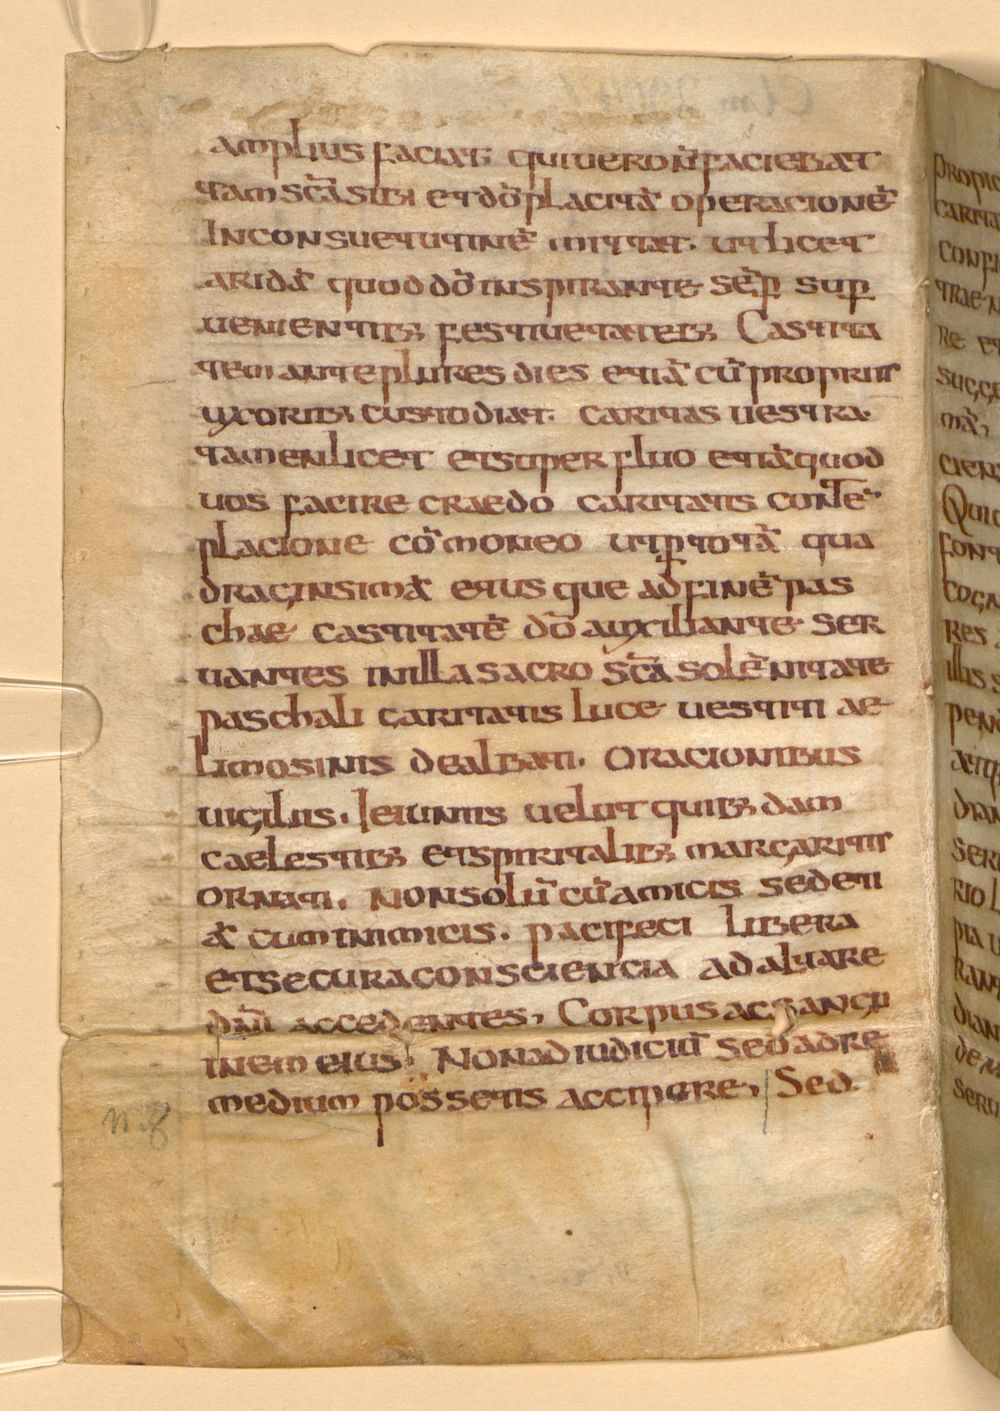 amplius faciat; qui uero n̄ faciebat
tam sc̄a sibi et dō placitā operacionē
In consuetutinē mittat. ut licet
aridā quod dō inspirante sēp sup
uenientib; festiuetateb; Castita
tem ante plures dies etiā cū propriis
uxorib; custodiat. caritas uestra.
tamen licet et superfluo etiā quod
uos facire craedo caritatis conte
placione cōmoneo ut p totā qua
draginsimā eius que ad finē pas
chae castitatē dō auxiliante ser
uantes in illa sacro sc̄a solēnitate
paschali caritatis luce uestiti ae
limosinis dealbati. oracionibus
uigiliis. Ieiuniis uelut quib; dam
caelestib; et spiritalib; margaritis
ornati. non solū cū amicis sed eti
ā cum inimicis. pacifeci libera
et secura consciencia ad altare
dn̄i accedentes, Corpus ac sangui
inem eius Non ad iudiciū sed ad re
medium possetis accipere, Sed
propic
carita
conpi
trae
re et
succ
mā,
cien
Qui
font
cogn
res
illis s
pen
dian
ser
rio
pia
ran
dian
den
seru